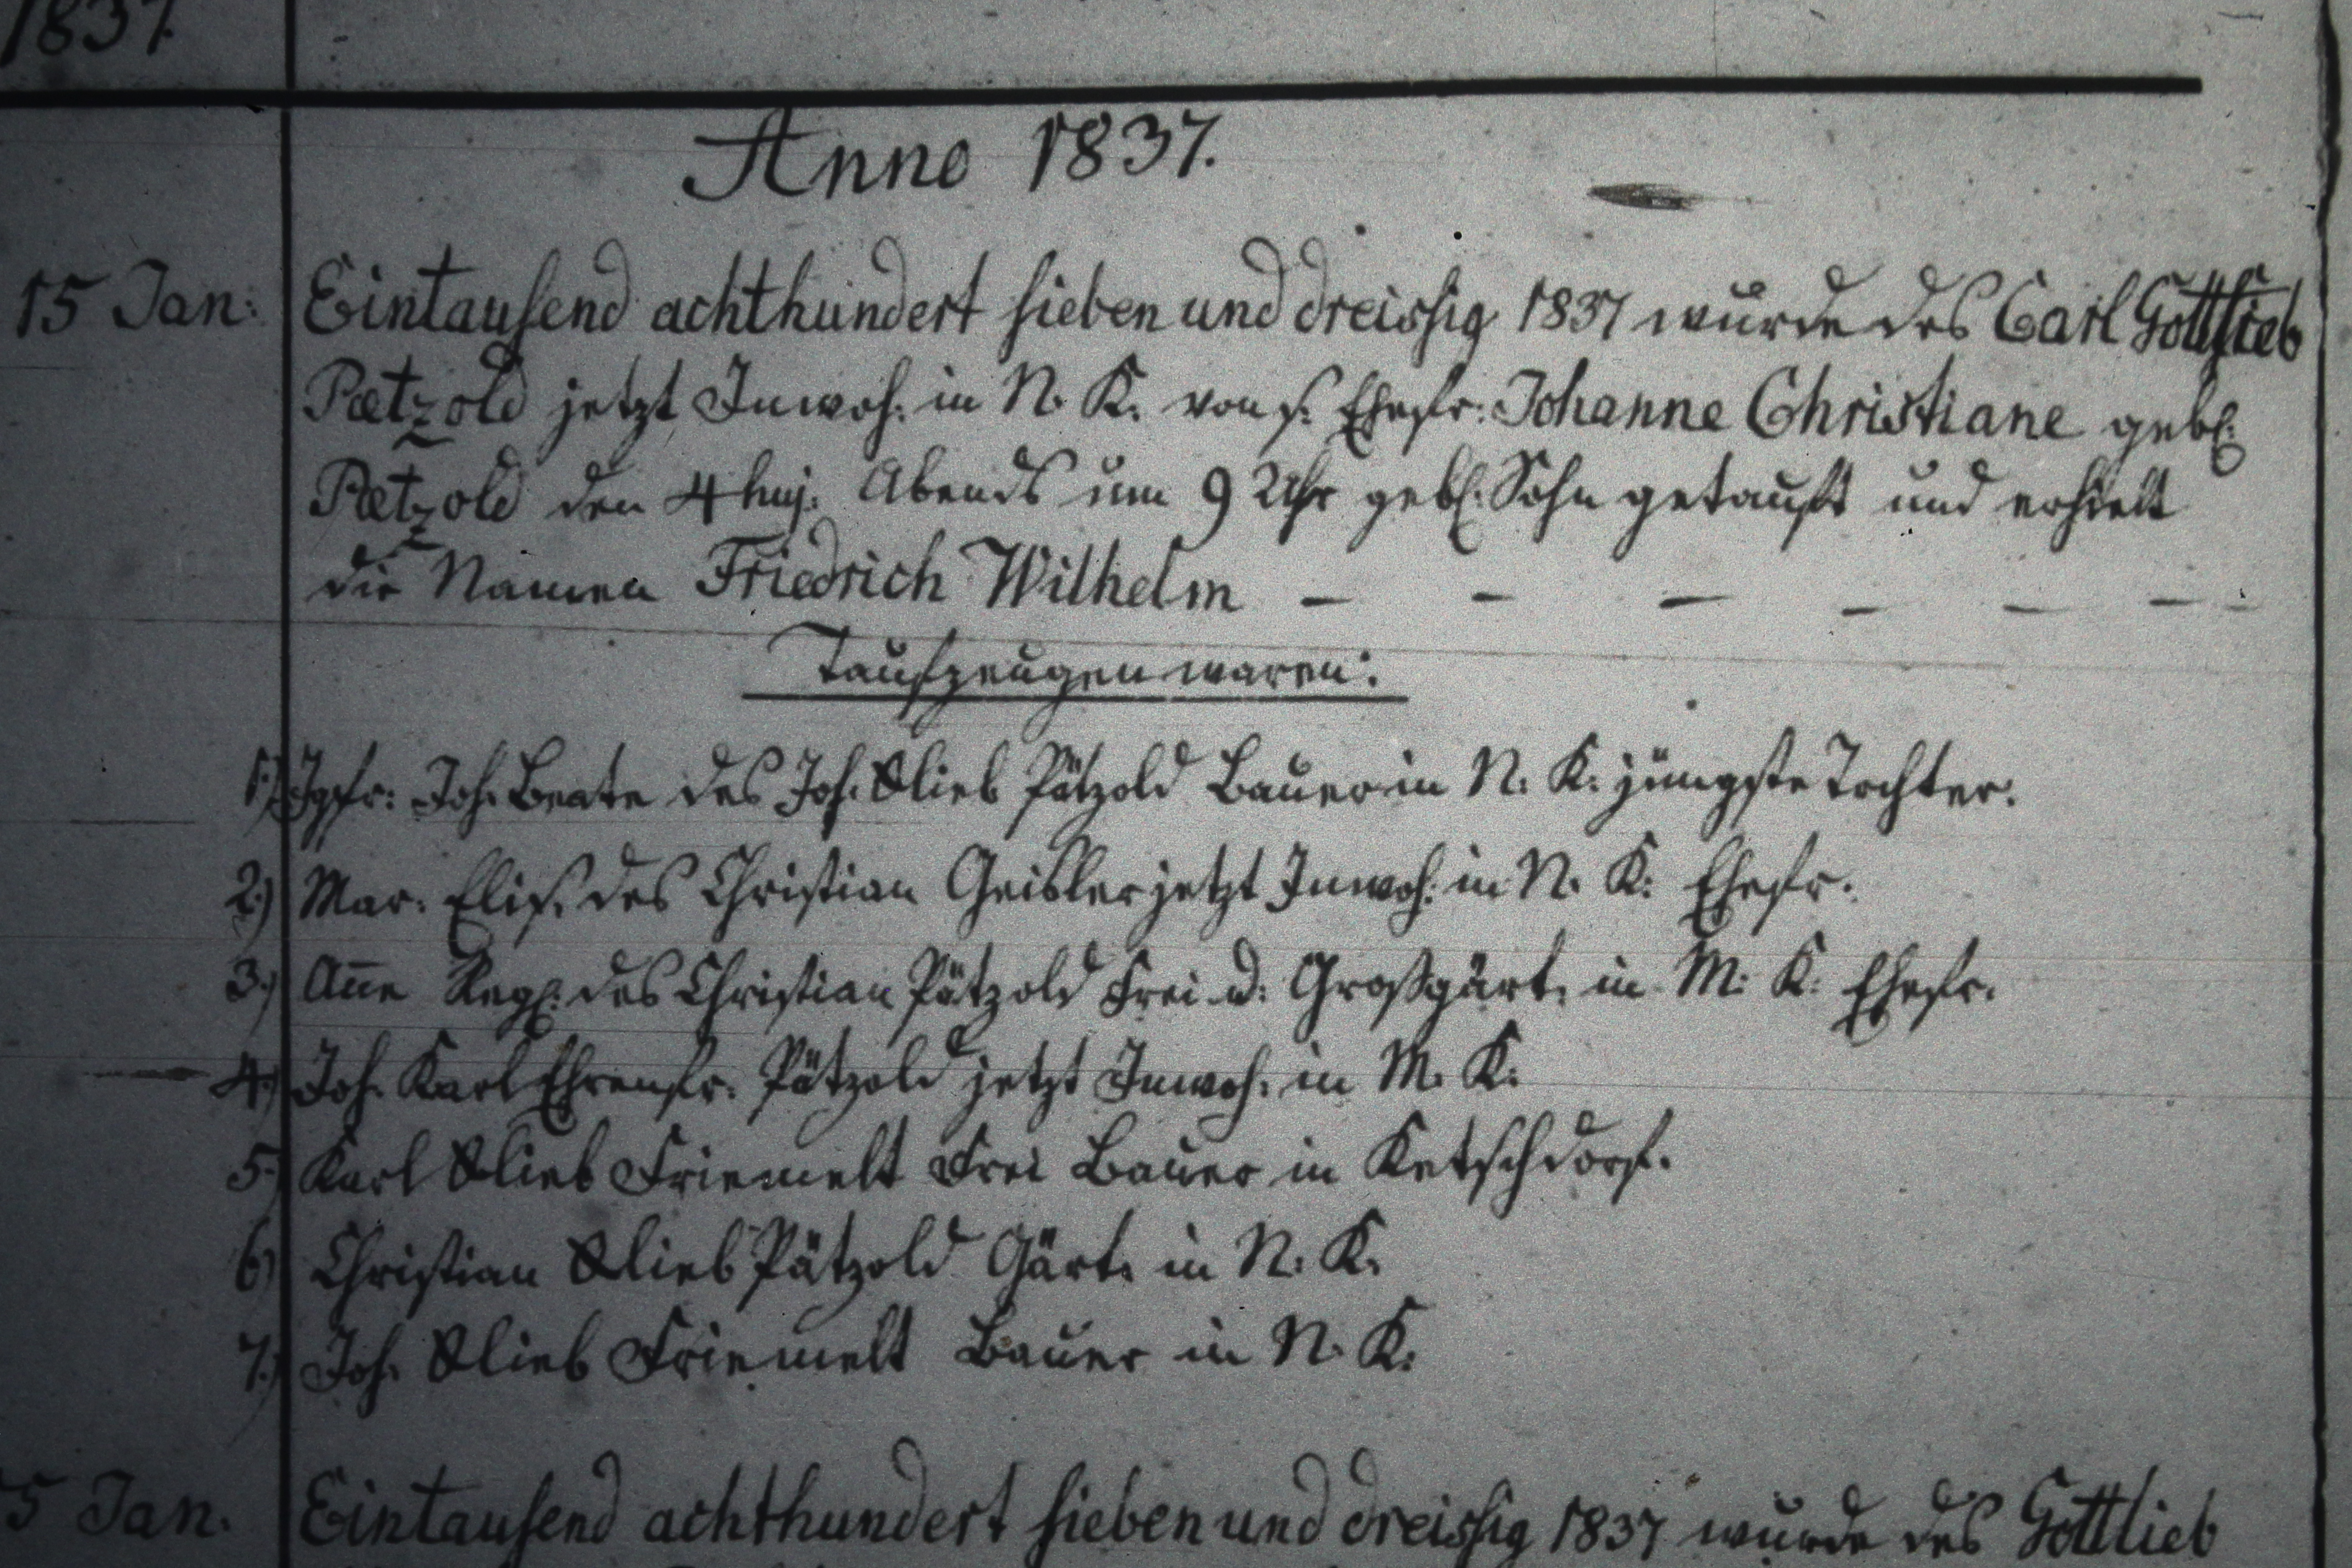 1837.
Anno 1837.
15 Jan: Eintausend achthundert sieben und dreissig 1837 wurde des Carl Gottlieb
Paetzold jetzt Inwoh: in N. K. von s. Ehefr: Johanne Christiane geb:
Paetzold den 4 huj: Abends um 9 Uhr geb: Sohn getauft und erhielt
die Namen Friedrich Wilhelm — — — — — —
Taufzeugen waren:
1.) Jgfr: Joh. Beate des Joh. Glieb Pätzold Bauer in N. K. jüngste Tochter.
2.) Mar. Elis. des Christian Geisler jetzt Inwoh: in N. K: Ehefr.
3.) Aña Reg: des Christian Pätzold Frei u: Großgärt. in M: K: Ehefr.
4.) Joh. Karl Ehrenfr. Pätzold jetzt Inwoh: in M. K:
5.) Karl Glieb Friemelt Frei Bauer in Ketschdorf.
6.) Christian Glieb Pätzold Gärt. in N. K.
7.) Joh. Glieb Friemelt Bauer in N. K:
5 Jan. Eintausend achthundert sieben und dreissig 1837 wurde des Gottlieb